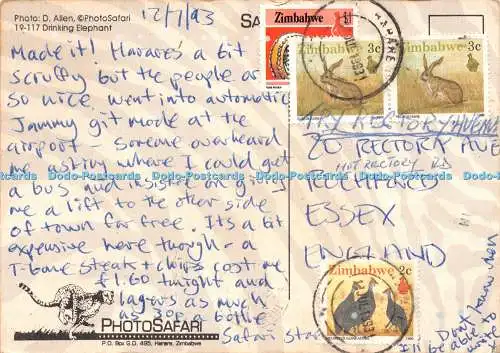 Photo: D. Allen, ©PhotoSafari
19-117 Drinking Elephant
12/1/93
Made it! Harare's a bit
scruffy but the people are
so nice, went into automatic
Jammy git mode at the
airport - someone overheard
me asking where I could get
a bus and insisted on giving
me a lift to the other side
of town for free. Its a bit
expensive here though - a
T-bone steak + chips cost me
£1.60 tonight and
lagers as much
as 30p a bottle
PHOTOSAFARI
P.O. Box G.D. 495, Harare, Zimbabwe
Safari
Zimbabwe
Zimbabwe
3c
Zimbabwe
3c
HARARE
TRY RECTORY AVENUE
20 RECTORY AVE
NOT RECTORY RD
ROCHFORD
ESSEX
ENGLAND
Zimbabwe
2c
Don't know when
I'll be able to
write to